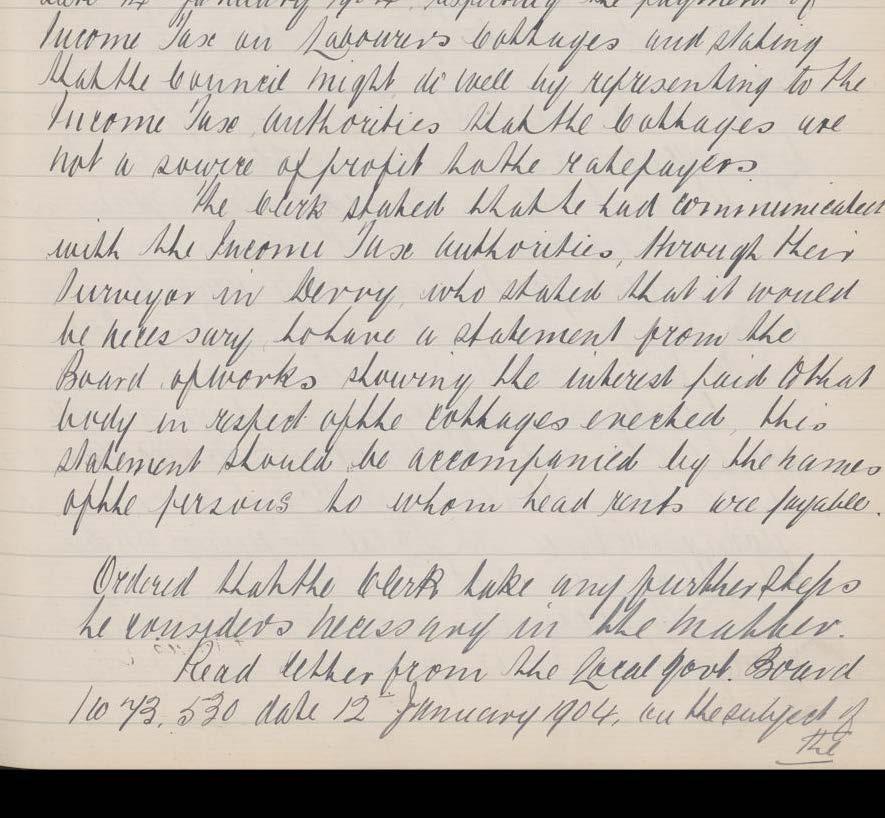 date 12 January 1904, respecting the payment of
Income Tax on Labourers Cottages and stating
that the Council might do well by representing to the
Income Tax authorities that the Cottages are
not a source of profit to the ratepayers
The Clerk stated that he had communicated
with the Income Tax authorities, through their
Surveyor in Derry, who stated that it would
be necessary to have a statement from the
Board of works showing the interest paid to that
body in respect of the cottages erected, this
statement should be accompanied by the names
of the persons to whom head rents are payable.
Ordered that the Clerk take any further steps
he considers necessary in the matter.
Read letter from the Local Govt. Board
No 73,530 date 12 January 1904, on the subject of
the